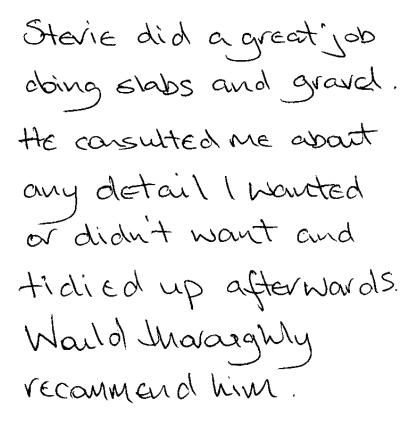 Stevie did a great job
doing slabs and gravel.
He consulted me about
any detail I wanted
or didn't want and
tidied up afterwards.
Would thoroughly
recommend him.